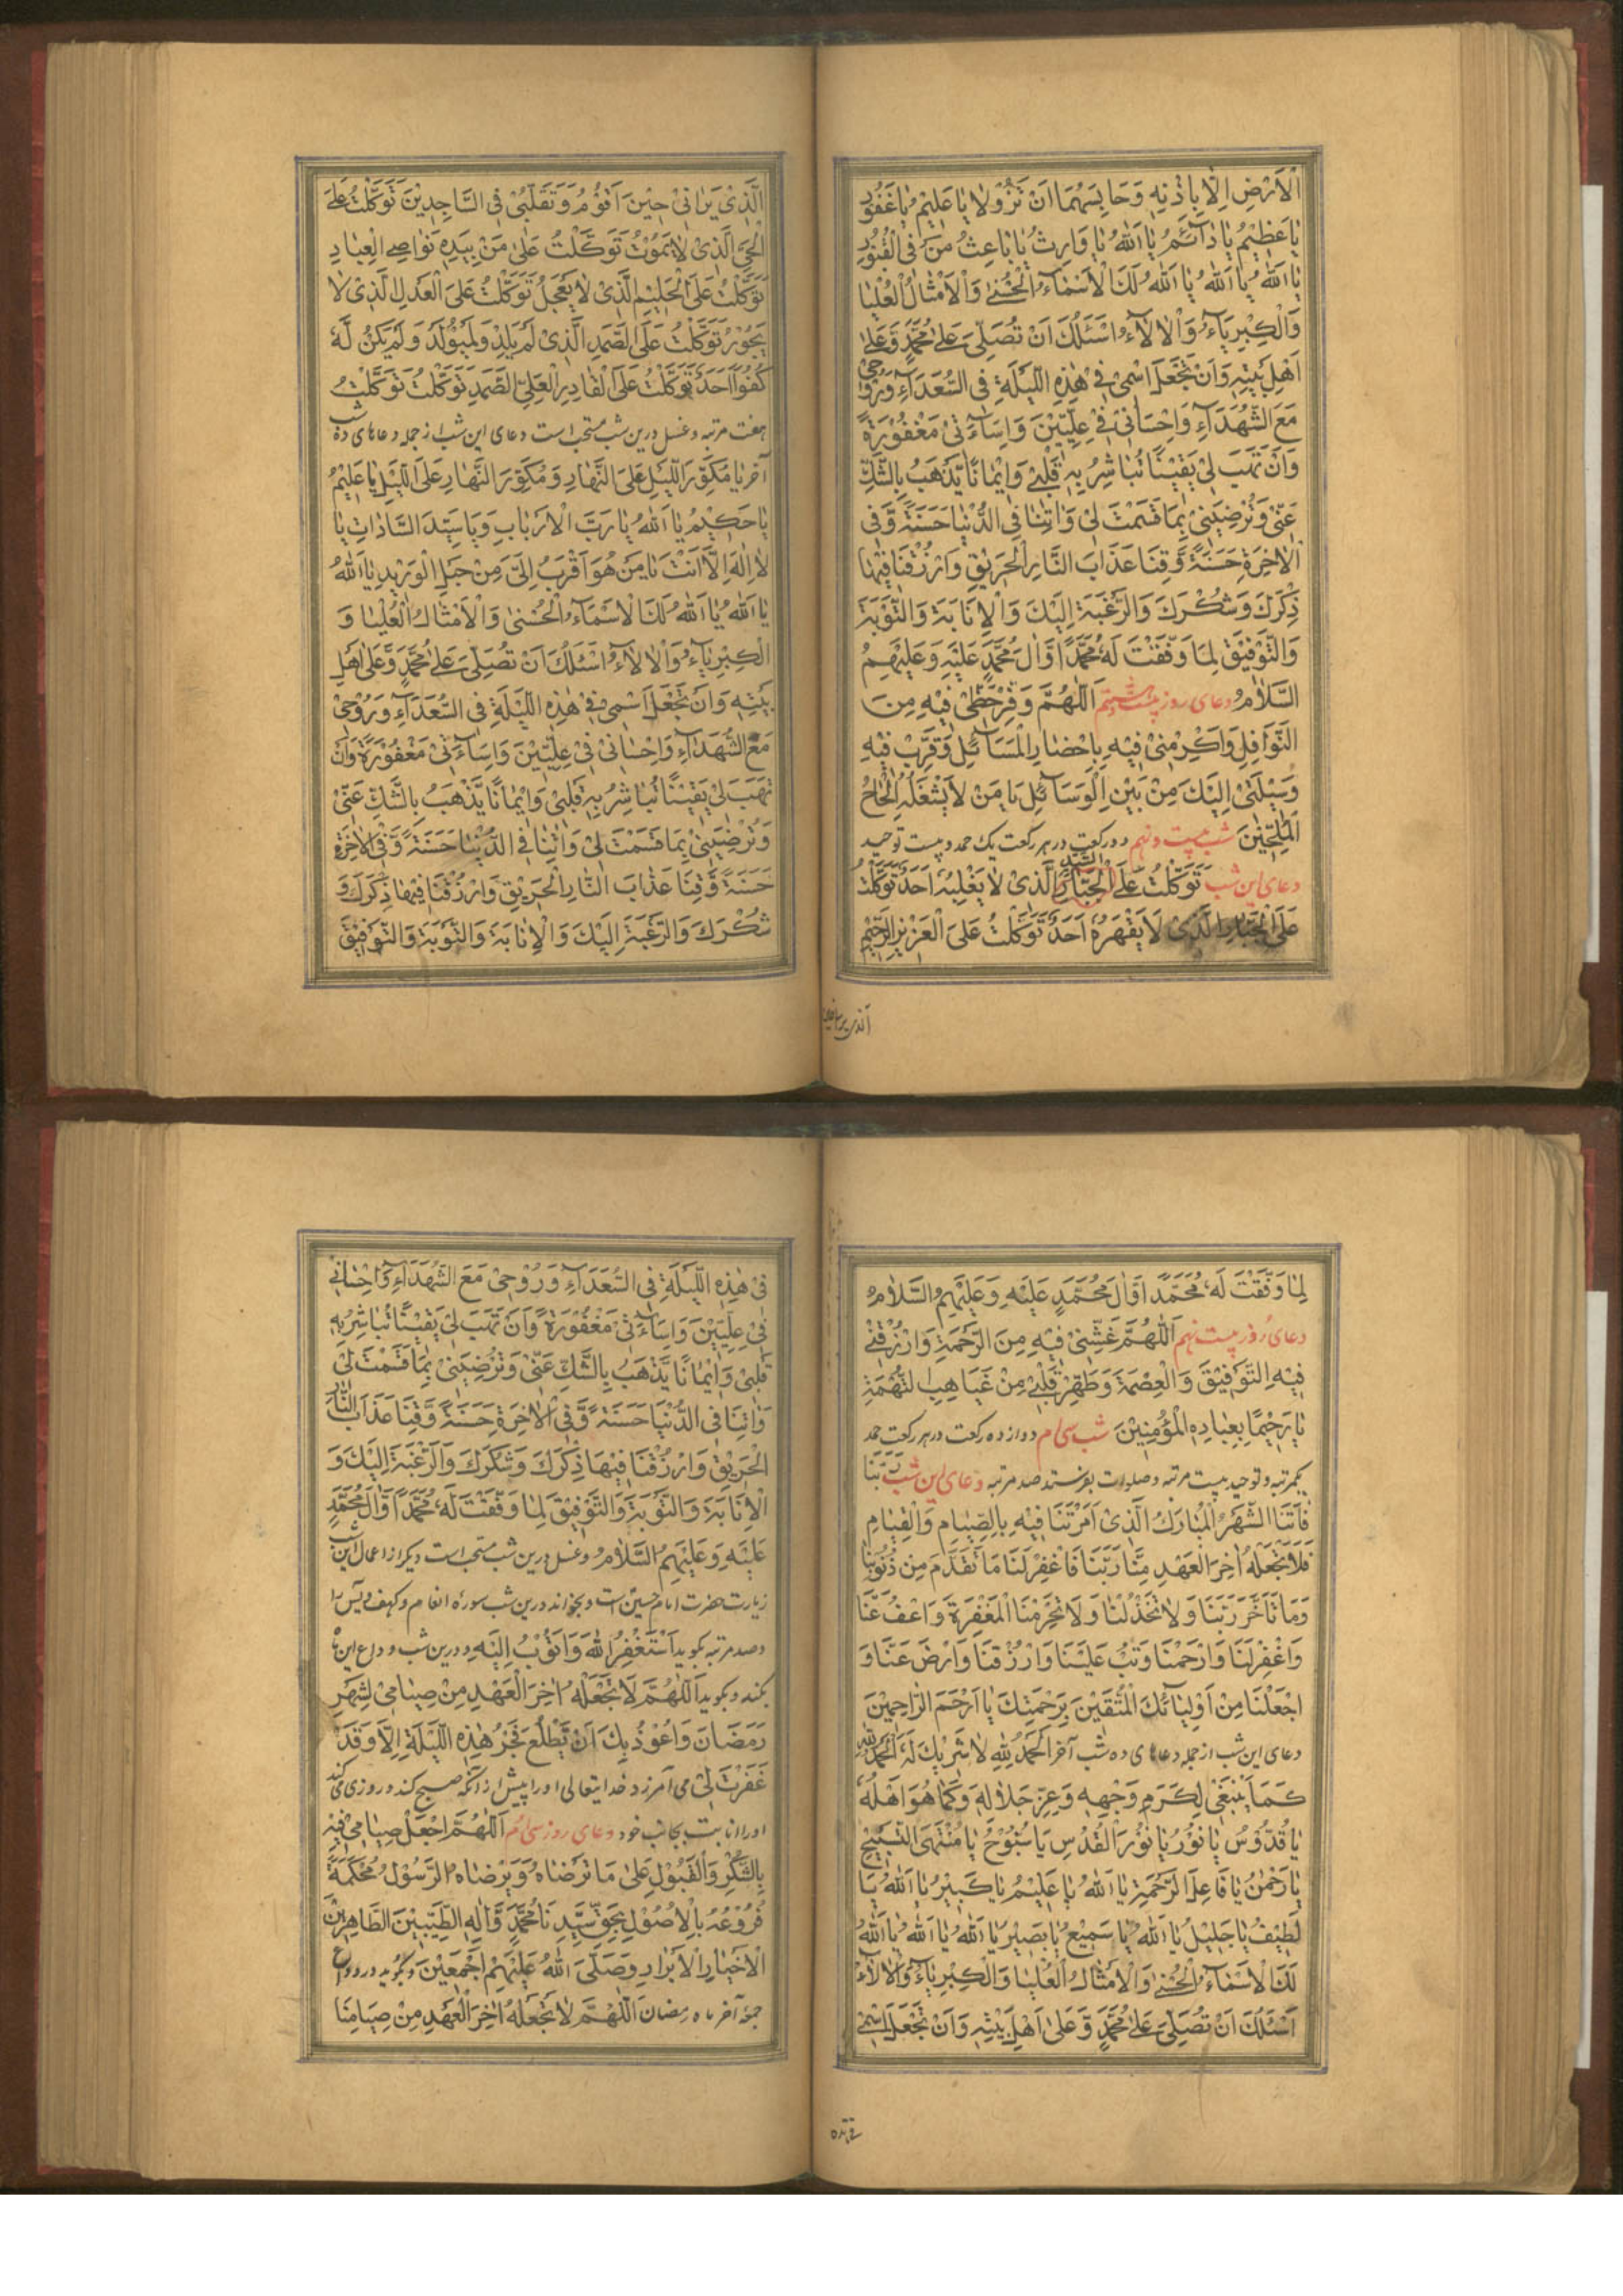 الْاَرْضِ اِلَّا بِاِذْنِهِ وَحَابِسَهُمَا اَنْ تَزُوْلَا يَا عَلِيْمُ يَا غَفُوْرُ
يَا عَظِيْمُ يَا دَآئِمُ يَا اَللهُ يَا وَارِثُ يَا بَاعِثُ مَنْ فِى الْقُبُوْرِ
يَا اَللهُ يَا اَللهُ يَا اَللهُ لَكَ الْاَسْمَآءُ الْحُسْنٰى وَالْاَمْثَالُ الْعُلْيَا
وَالْكِبْرِيَآءُ وَالْاٰلَآءُ اَسْئَلُكَ اَنْ تُصَلِّىَ عَلٰى مُحَمَّدٍ وَّعَلٰى
اَهْلِ بَيْتِهِ وَاَنْ تَجْعَلَ اسْمِىْ فِىْ هٰذِهِ اللَّيْلَةِ فِى السُّعَدَآءِ وَرُوْحِىْ
مَعَ الشُّهَدَآءِ وَاِحْسَانِىْ فِىْ عِلِّيِّيْنَ وَاِسَآءَتِىْ مَغْفُوْرَةً
وَاَنْ تَهَبَ لِىْ يَقِيْنًا تُبَاشِرُ بِهِ قَلْبِىْ وَاِيْمَانًا يَّذْهَبُ بِالشَّكِّ
عَنِّىْ وَتُرْضِيَنِىْ بِمَا قَسَمْتَ لِىْ وَاٰتِنَا فِى الدُّنْيَا حَسَنَةً وَّفِى
الْاٰخِرَةِ حَسَنَةً وَّقِنَا عَذَابَ النَّارِ الْحَرِيْقِ وَارْزُقْنَا فِيْهَا
ذِكْرَكَ وَشُكْرَكَ وَالرَّغْبَةَ اِلَيْكَ وَالْاِنَابَةَ وَالتَّوْبَةَ
وَالتَّوْفِيْقَ لِمَا وَفَّقْتَ لَهُ مُحَمَّدًا وَّاٰلَ مُحَمَّدٍ عَلَيْهِ وَعَلَيْهِمُ
السَّلَامُ دعاى روز بيست هشتم اَللّٰهُمَّ وَفِّرْ حَظِّىْ فِيْهِ مِنَ
النَّوَافِلِ وَاَكْرِمْنِىْ فِيْهِ بِاِحْضَارِ الْمَسَآئِلِ وَقَرِّبْ فِيْهِ
وَسِيْلَتِىْ اِلَيْكَ مِنْ بَيْنِ الْوَسَآئِلِ يَا مَنْ لَا يَشْغَلُهُ اِلْحَاحُ
الْمُلِحِّيْنَ شب بيست و نهم دو ركعت در هر ركعت يك حمد و بيست توحيد
دعاى اين شب تَوَكَّلْتُ عَلَى السَّيِّدِ الْجَبَّارِ الَّذِىْ لَا يَغْلِبُهُ اَحَدٌ تَوَكَّلْتُ
عَلَى الْجَبَّارِ الَّذِىْ لَا يَقْهَرُهُ اَحَدٌ تَوَكَّلْتُ عَلَى الْعَزِيْزِ الرَّحِيْمِ
الَّذِىْ يَرَانِىْ حِيْنَ اَقُوْمُ وَتَقَلُّبِىْ فِى السَّاجِدِيْنَ تَوَكَّلْتُ عَلَى
الْحَىِّ الَّذِىْ لَا يَمُوْتُ تَوَكَّلْتُ عَلٰى مَنْ بِيَدِهِ نَوَاصِى الْعِبَادِ
تَوَكَّلْتُ عَلَى الْحَلِيْمِ الَّذِىْ لَا يَعْجَلُ تَوَكَّلْتُ عَلَى الْعَدْلِ الَّذِىْ لَا
يَجُوْرُ تَوَكَّلْتُ عَلَى الصَّمَدِ الَّذِىْ لَمْ يَلِدْ وَلَمْ يُوْلَدْ وَلَمْ يَكُنْ لَّهُ
كُفُوًا اَحَدٌ تَوَكَّلْتُ عَلَى الْقَادِرِ الْعَلِىِّ الصَّمَدِ تَوَكَّلْتُ تَوَكَّلْتُ
هفت مرتبه و غسل درين شب مستحب است دعاى اين شب از جمله دعاهاى ده شب
آخر يَا مُكَوِّرَ اللَّيْلِ عَلَى النَّهَارِ وَمُكَوِّرَ النَّهَارِ عَلَى اللَّيْلِ يَا عَلِيْمُ
يَا حَكِيْمُ يَا اَللهُ يَا رَبَّ الْاَرْبَابِ وَيَا سَيِّدَ السَّادَاتِ يَا
لَا اِلٰهَ اِلَّا اَنْتَ يَا مَنْ هُوَ اَقْرَبُ اِلَىَّ مِنْ حَبْلِ الْوَرِيْدِ يَا اَللهُ
يَا اَللهُ يَا اَللهُ لَكَ الْاَسْمَآءُ الْحُسْنٰى وَالْاَمْثَالُ الْعُلْيَا وَ
الْكِبْرِيَآءُ وَالْاٰلَآءُ اَسْئَلُكَ اَنْ تُصَلِّىَ عَلٰى مُحَمَّدٍ وَّعَلٰى اَهْلِ
بَيْتِهِ وَاَنْ تَجْعَلَ اسْمِىْ فِىْ هٰذِهِ اللَّيْلَةِ فِى السُّعَدَآءِ وَرُوْحِىْ
مَعَ الشُّهَدَآءِ وَاِحْسَانِىْ فِىْ عِلِّيِّيْنَ وَاِسَآءَتِىْ مَغْفُوْرَةً وَاَنْ
تَهَبَ لِىْ يَقِيْنًا تُبَاشِرُ بِهِ قَلْبِىْ وَاِيْمَانًا يَّذْهَبُ بِالشَّكِّ عَنِّىْ
وَتُرْضِيَنِىْ بِمَا قَسَمْتَ لِىْ وَاٰتِنَا فِى الدُّنْيَا حَسَنَةً وَّفِى الْاٰخِرَةِ
حَسَنَةً وَّقِنَا عَذَابَ النَّارِ الْحَرِيْقِ وَارْزُقْنَا فِيْهَا ذِكْرَكَ وَ
شُكْرَكَ وَالرَّغْبَةَ اِلَيْكَ وَالْاِنَابَةَ وَالتَّوْبَةَ وَالتَّوْفِيْقَ
لِمَا وَفَّقْتَ لَهُ مُحَمَّدًا وَّاٰلَ مُحَمَّدٍ عَلَيْهِ وَعَلَيْهِمُ السَّلَامُ
دعاى روز بيست نهم اَللّٰهُمَّ غَشِّنِىْ فِيْهِ مِنَ الرَّحْمَةِ وَارْزُقْنِىْ
فِيْهِ التَّوْفِيْقَ وَالْعِصْمَةَ وَطَهِّرْ قَلْبِىْ مِنْ غَيَاهِبِ التُّهَمَةِ
يَا رَحِيْمًا بِعِبَادِهِ الْمُؤْمِنِيْنَ شب سى ام دوازده ركعت در هر ركعت حمد
يكمرتبه و توحيد بيست مرتبه و صلوات بفرستد صد مرتبه دعاى اين شب رَبَّنَا
فَاَتَنَا الشَّهْرُ الْمُبَارَكُ الَّذِىْ اَمَرْتَنَا فِيْهِ بِالصِّيَامِ وَالْقِيَامِ
فَلَا تَجْعَلْهُ اٰخِرَ الْعَهْدِ مِنَّا رَبَّنَا فَاغْفِرْ لَنَا مَا تَقَدَّمَ مِنْ ذُنُوْبِنَا
وَمَا تَاَخَّرَ رَبَّنَا وَلَا تَخْذُلْنَا وَلَا تَحْرِمْنَا الْمَغْفِرَةَ وَاعْفُ عَنَّا
وَاغْفِرْ لَنَا وَارْحَمْنَا وَتُبْ عَلَيْنَا وَارْزُقْنَا وَارْضَ عَنَّا وَ
اجْعَلْنَا مِنْ اَوْلِيَآئِكَ الْمُتَّقِيْنَ بِرَحْمَتِكَ يَا اَرْحَمَ الرَّاحِمِيْنَ
دعاى اين شب از جمله دعاهاى ده شب آخر اَلْحَمْدُ لِلّٰهِ لَا شَرِيْكَ لَهُ اَلْحَمْدُ لِلّٰهِ
كَمَا يَنْبَغِىْ لِكَرَمِ وَجْهِهِ وَعِزِّ جَلَالِهِ وَكَمَا هُوَ اَهْلُهُ
يَا قُدُّوْسُ يَا نُوْرُ يَا نُوْرَ الْقُدْسِ يَا سُبُّوْحُ يَا مُنْتَهَى التَّسْبِيْحِ
يَا رَحْمٰنُ يَا فَاعِلَ الرَّحْمَةِ يَا اَللهُ يَا عَلِيْمُ يَا كَبِيْرُ يَا اَللهُ يَا
لَطِيْفُ يَا جَلِيْلُ يَا اَللهُ يَا سَمِيْعُ يَا بَصِيْرُ يَا اَللهُ يَا اَللهُ يَا اَللهُ
لَكَ الْاَسْمَآءُ الْحُسْنٰى وَالْاَمْثَالُ الْعُلْيَا وَالْكِبْرِيَآءُ وَالْاٰلَآءُ
اَسْئَلُكَ اَنْ تُصَلِّىَ عَلٰى مُحَمَّدٍ وَّعَلٰى اَهْلِ بَيْتِهِ وَاَنْ تَجْعَلَ اسْمِىْ
فِىْ هٰذِهِ اللَّيْلَةِ فِى السُّعَدَآءِ وَرُوْحِىْ مَعَ الشُّهَدَآءِ وَاِحْسَانِىْ
فِىْ عِلِّيِّيْنَ وَاِسَآءَتِىْ مَغْفُوْرَةً وَاَنْ تَهَبَ لِىْ يَقِيْنًا تُبَاشِرُ بِهِ
قَلْبِىْ وَاِيْمَانًا يَّذْهَبُ بِالشَّكِّ عَنِّىْ وَتُرْضِيَنِىْ بِمَا قَسَمْتَ لِىْ
وَاٰتِنَا فِى الدُّنْيَا حَسَنَةً وَّفِى الْاٰخِرَةِ حَسَنَةً وَّقِنَا عَذَابَ النَّارِ
الْحَرِيْقِ وَارْزُقْنَا فِيْهَا ذِكْرَكَ وَشُكْرَكَ وَالرَّغْبَةَ اِلَيْكَ وَ
الْاِنَابَةَ وَالتَّوْبَةَ وَالتَّوْفِيْقَ لِمَا وَفَّقْتَ لَهُ مُحَمَّدًا وَّاٰلَ مُحَمَّدٍ
عَلَيْهِ وَعَلَيْهِمُ السَّلَامُ و غسل درين شب مستحب است ديكر از اعمال اين شب
زيارت حضرت امام حسين است و بخواند درين شب سوره انعام و كهف و يس را
و صد مرتبه بكويد اَسْتَغْفِرُ اللهَ وَاَتُوْبُ اِلَيْهِ و درين شب وداع اين ماه
بكند و بكويد اَللّٰهُمَّ لَا تَجْعَلْهُ اٰخِرَ الْعَهْدِ مِنْ صِيَامِىْ لِشَهْرِ
رَمَضَانَ وَاَعُوْذُ بِكَ اَنْ يَّطْلُعَ فَجْرُ هٰذِهِ اللَّيْلَةِ اِلَّا وَقَدْ
غَفَرْتَ لِىْ مى آمرزد خدايتعالى او را پيش از آنكه صبح كند و روزى مى كند
او را انابت بجانب خود دعاى روز سى ام اَللّٰهُمَّ اجْعَلْ صِيَامِىْ فِيْهِ
بِالشُّكْرِ وَالْقَبُوْلِ عَلٰى مَا تَرْضَاهُ وَيَرْضَاهُ الرَّسُوْلُ مُحْكَمَةً
فُرُوْعُهُ بِالْاُصُوْلِ بِحَقِّ سَيِّدِنَا مُحَمَّدٍ وَّاٰلِهِ الطَّيِّبِيْنَ الطَّاهِرِيْنَ
الْاَخْيَارِ الْاَبْرَارِ وَصَلَّى اللهُ عَلَيْهِمْ اَجْمَعِيْنَ و بكويد در وداع
جمعه آخر ماه رمضان اَللّٰهُمَّ لَا تَجْعَلْهُ اٰخِرَ الْعَهْدِ مِنْ صِيَامِنَا